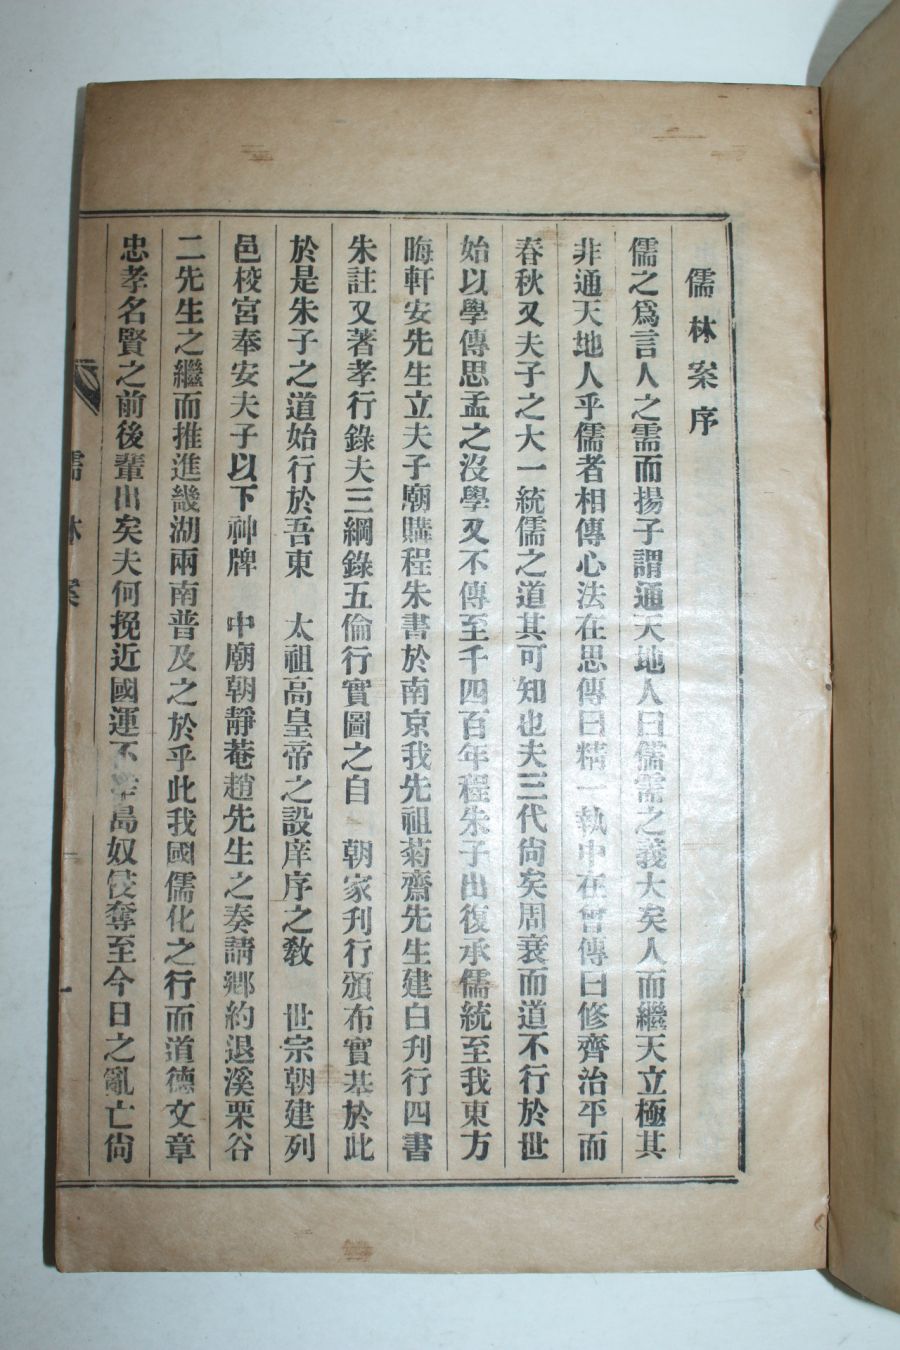 儒林案序
儒之爲言人之需而揚子謂通天地人曰儒需之義大矣人而繼天立極其
非通天地人乎儒者相傳心法在思傳曰精一執中在曾傳曰修齊治平而
春秋又夫子之大一統儒之道其可知也夫三代尙矣周衰而道不行於世
始以學傳思孟之沒學又不傳至千四百年程朱子出復承儒統至我東方
晦軒安先生立夫子廟購程朱書於南京我先祖菊齋先生建白刋行四書
朱註又著孝行錄夫三綱錄五倫行實圖之自　朝家刋行頒布實基於此
於是朱子之道始行於吾東　太祖高皇帝之設庠序之敎　世宗朝建列
邑校宮奉安夫子以下神牌　中廟朝靜菴趙先生之奏請鄕約退溪栗谷
二先生之繼而推進畿湖兩南普及之於乎此我國儒化之行而道德文章
忠孝名賢之前後輩出矣夫何挽近國運不島奴侵奪至今日之亂亡尙
儒林案
一